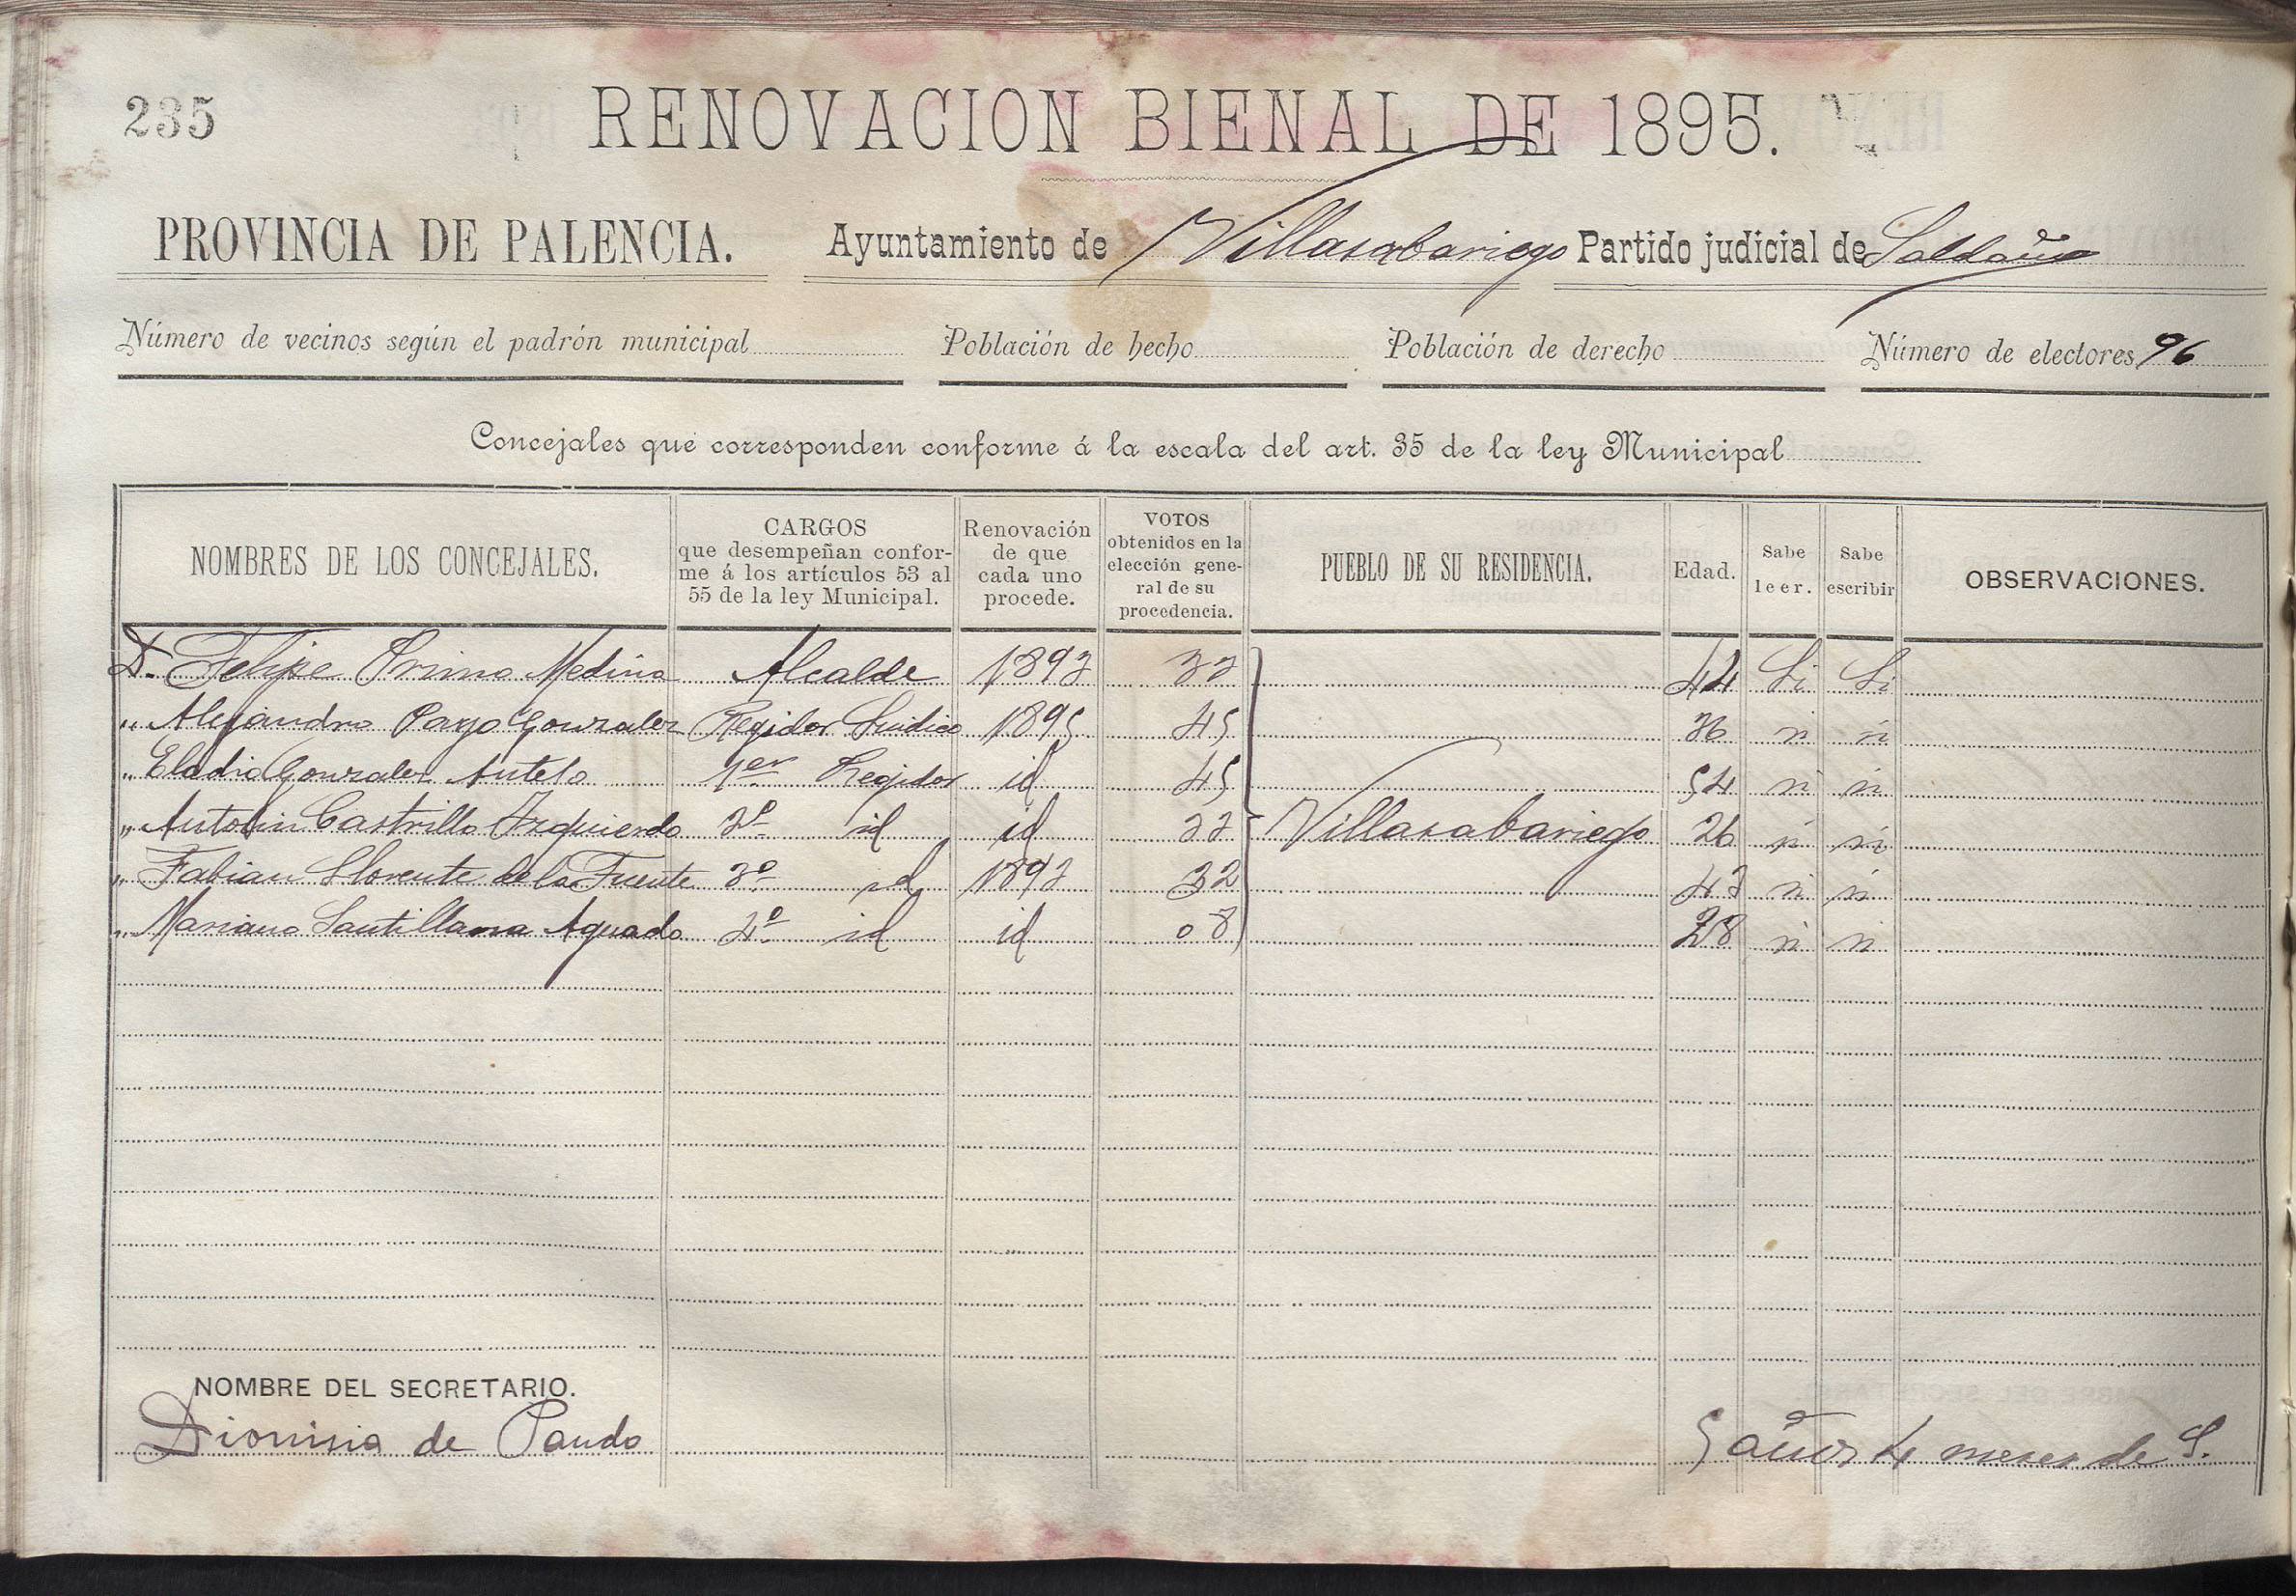 235
RENOVACION BIENAL DE 1895.
PROVINCIA DE PALENCIA. Ayuntamiento de Villasabariego Partido judicial de Saldaña
Número de vecinos según el padrón municipal Población de hecho Población de derecho Número de electores 96
Concejales que corresponden conforme á la escala del art. 35 de la ley Municipal
NOMBRES DE LOS CONCEJALES.
CARGOS
que desempeñan confor-
me á los artículos 53 al
55 de la ley Municipal.
Renovación
de que
cada uno
procede.
VOTOS
obtenidos en la
elección gene-
ral de su
procedencia.
PUEBLO DE SU RESIDENCIA.
Edad.
Sabe
leer.
Sabe
escribir
OBSERVACIONES.
D. Felipe Primo Medina Alcalde 1893 33 44 Si Si
" Alejandro Payo Gonzalez Regidor Sindico 1895 45 36 si si
" Eladio Gonzalez 1er Regidor id 45 54 si si
" Autolin Castrillo Izquierdo 2º id id 33 Villasabariego 26 si si
" Fabian Llorente de la Fuente 3º id 1893 32 43 si si
" Mariano Santillana Aguado 4º id id 08 28 si si
NOMBRE DEL SECRETARIO.
Dionisio de Pando 5 años 4 meses de S.